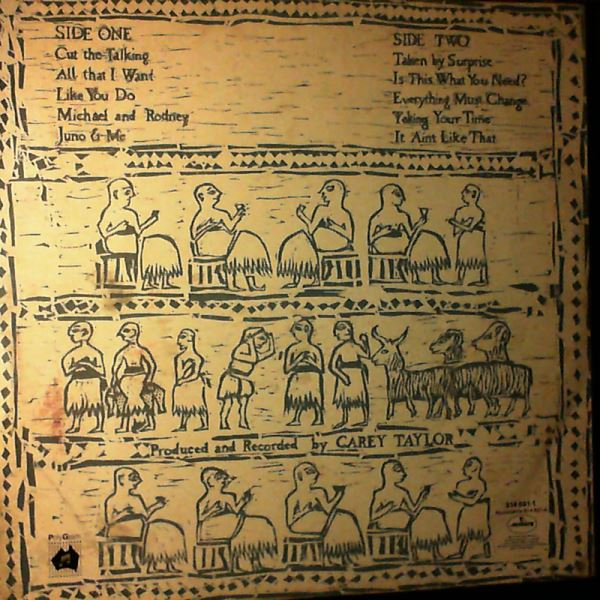 SIDE ONE
Cut the Talking
All that I Want
Like You Do
Michael and Rodney
Juno & Me
SIDE TWO
Taken by Surprise
Is This What You Need?
Everything Must Change
Taking Your Time
It Aint Like That
Produced and Recorded by CAREY TAYLOR